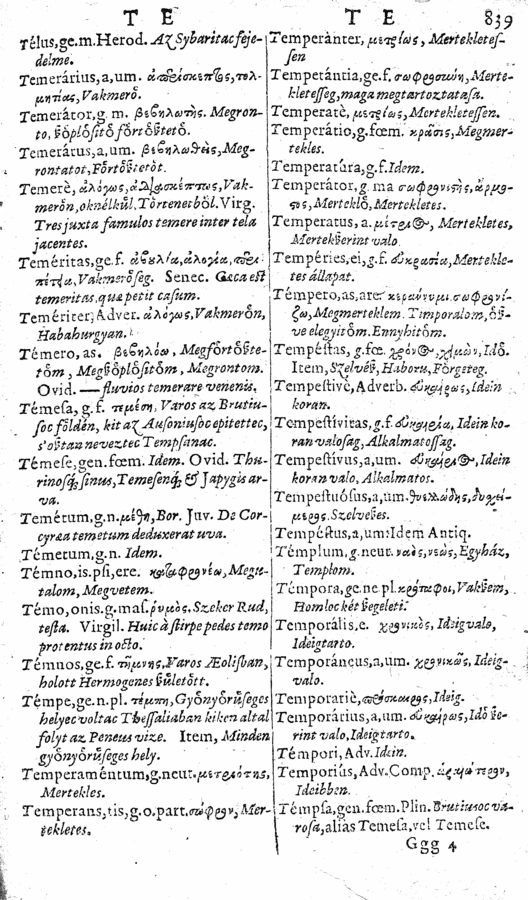 T E T E 839
Télus,ge.m.Herod. Az Sybaritac feje-
delme.
Temerárius,a,um. ἀπερίσκεπτος,τολ-
μητίας, Vakmerö.
Temerátor,g.m. βεβηλωτὴς. Megron-
to,
Temerátus,a,um. βεβηλωθεὶς, Meg-
rontatot,
Temerè, ἀλόγως, Vak-
merön, oknélkül. Törtenetböl. Virg.
Tres juxta famulos temere inter tela
jacentes.
Teméritas,ge.f. ἀβουλία,ἀλογία,
Vakmeröseg. Senec. Cæca est
temeritas,quæ petit casum.
Temériter,Adver. ἀλόγως,Vakmerön,
Habahurgyan.
Témero,as. βεβηλόω,
Megrontom.
Ovid. — fluvios temerare venenis.
Témesa, g. f. τεμέση, Varos az Brutiu-
soc földén, kit az Ausoniusoc epitettec,
s'ostan neveztec Tempsanac.
Témese,gen.fœm. Idem. Ovid. Thu-
rinosq; sinus,Temesenq; & Japygis ar-
va.
Temétum,g.n.μέθη,Bor. Juv. De Cor-
cyrea temetum deduxerat uva.
Témetum,g.n. Idem.
Témno,is.psi,ere. καταφρονέω, Megu-
talom, Megvetem.
Témo,onis.g.mas.ῥυμὸς.Szeker Rud,
testa. Virgil. Huic à stirpe pedes temo
protentus in octo.
Témnos,ge.f. τῆμνης,Varos Æolisban,
holott Hermogenes
Témpe,ge.n.pl. τέμπη, Gyönyörüseges
helyec voltac Thessaliaban kiken altal
folyt az Peneus vize. Item, Minden
gyönyörüseges hely.
Temperaméntum,g.neut.μετριότης,
Mertekles.
Temperans,tis,g.o.part.σώφρων, Mer-
tekletes.
Temperánter, μετρίως, Mertekletes-
sen
Temperántia,ge.f. σωφροσύνη, Merte-
kletesseg,maga megtartoztatasa.
Temperatè, μετρίως, Mertekletessen.
Temperátio,g.fœm. κρᾶσις, Megmer-
tekles.
Temperatúra,g.f.Idem.
Temperátor,g.ma σωφρονιστὴς,
Merteklö, Mertekletes.
Temperatus, a. μέτριος, Mertekletes,
valo.
Tempéries,ei,g.f. εὐκρασία, Mertekle-
tes állapat.
Témpero,as,are κεράννυμι.σωφρονί-
ζω, Megmerteklem. Timporalom,
ve elegyitöm. Ennyhitöm.
Tempéstas, g. fœ. χρόνος, χειμὼν, Idö.
Item, Haboru, Förgeteg.
Tempestivè, Adverb. εὐκαίρως, Idein
koran.
Tempestívitas, g.f. εὐκαιρία, Idein ko-
ran valosag, Alkalmatossag.
Tempestívus,a,um. εὔκαιρος, Idein
koran valo, Alkalmatos.
Tempestuósus,a,um.
Tempéstus,a,um:Idem Antiq.
Témplum,g.neut. ναὸς,νεὼς, Egyház,
Templom.
Témpora,ge.ne pl. κρόταφοι,
Homloc két
Temporális,e. χρονικὸς, Ideig valo,
Ideigtarto.
Temporáneus,a,um. Ideig-
valo.
Temporariè,πρόσκαιρος, Ideig.
Temporárius,a,um. εὐκαίρως,
rint valo,Ideigtarto.
Témpori, Adv. Idein.
Temporiús, Adv.Comp.
Ideibben.
Témpsa,gen.fœm.Plin. Brutiusoc va-
rosa,alias Temesa,vel Temese.
Ggg 4